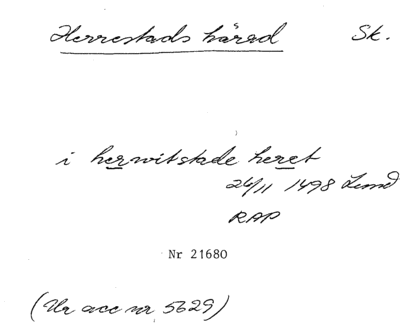 Herrestads härad Sk.
i herwitstade heret
26/11 1498 Lund
RAP
Nr 21680
(Ur acc nr 5629)